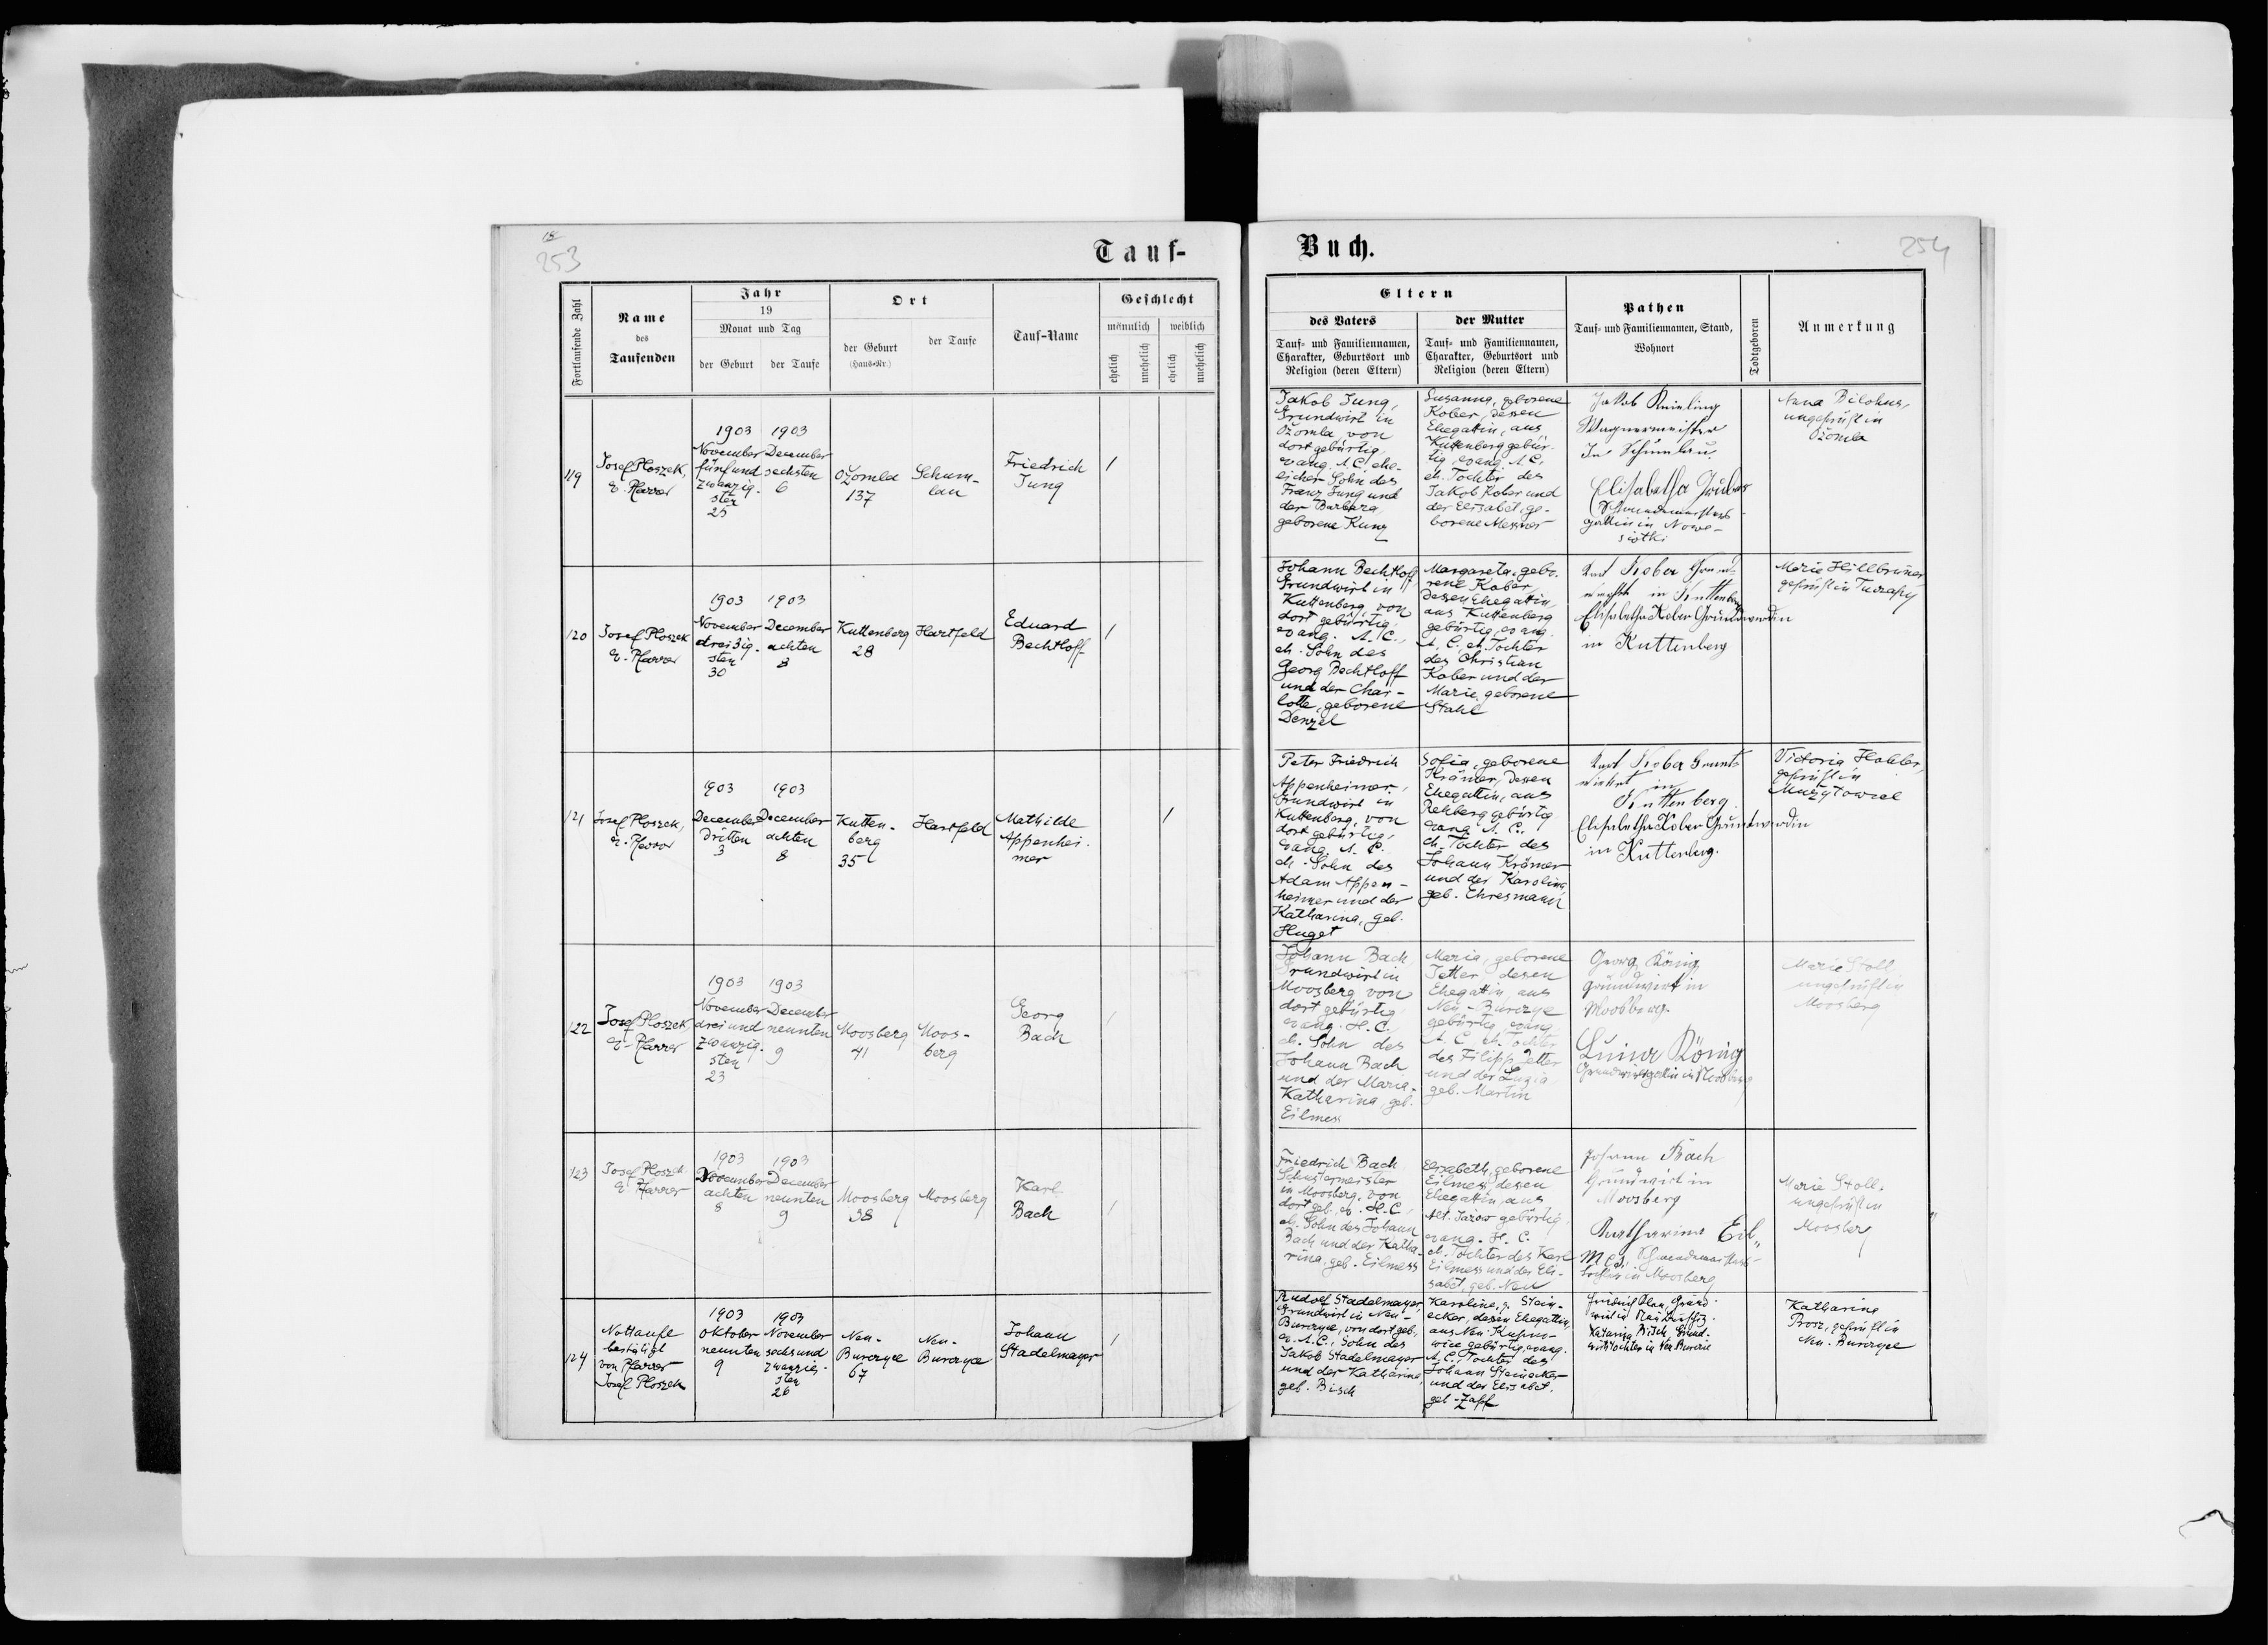 18
253
Tauf-
Fortlaufende Zahl
Name
des
Taufenden
Jahr
19
Monat und Tag
der Geburt
der Taufe
Ort
der Geburt
(Haus-Nr.)
der Taufe
Tauf-Name
Geschlecht
männlich
weiblich
ehelich
unehelich
ehelich
unehelich
119
Josef Ploszek,
e. Pfarrer
1903
November
fünfund
zwanzig-
sten
25
1903
December
sechsten
6
Ożomla
137
Schum-
lau
Friedrich
Jung
1
120
Josef Ploszek
e. Pfarrer
1903
November
dreißig-
sten
30
1903
December
achten
8
Kuttenberg
28
Hartfeld
Eduard
Bechtloff
1
121
Josef Ploszek,
e. Pfarrer
1903
December
dritten
3
1903
December
achten
8
Kutten-
berg
35
Hartfeld
Mathilde
Appenhei-
mer
1
122
Josef Ploszek,
e. Pfarrer
1903
November
drei und
zwanzig-
sten
23
1903
December
neunten
9
Moosberg
41
Moos-
berg
Georg
Bach
1
123
Josef Ploszek
e. Pfarrer
1903
November
achten
8
1903
December
neunten
9
Moosberg
38
Moosberg
Karl
Bach
1
124
Nottaufe
bestätigt
von Pfarrer
Josef Ploszek
1903
Oktober
neunten
9
1903
November
sechsund
zwanzig-
sten
26
Neu-
Burczyce
67
Neu-
Burczyce
Johann
Stadelmayer
1
Buch.
254
Eltern
des Vaters
Tauf- und Familiennamen,
Charakter, Geburtsort und
Religion (deren Eltern)
der Mutter
Tauf- und Familiennamen,
Charakter, Geburtsort und
Religion (deren Eltern)
Pathen
Tauf- und Familiennamen, Stand,
Wohnort
Todtgeboren
Anmerkung
Jakob Jung,
Grundwirt in
Ożomla, von
dort gebürtig,
evang. A. C. ehe-
licher Sohn des
Franz Jung und
der Barbara,
geborene Kunz
Susanna, geborene
Kober, dessen
Ehegattin, aus
Kuttenberg gebür-
tig, evang. A. C.
eh. Tochter des
Jakob Kober und
der Elisabet, ge-
borene Messner
Jakob Knieling
Wagnermeister
In Schumlau.
Elisabetha Gruber
Schmiedemeisters
gattin in Nowe-
siołki
Anna Bilohus,
ungeprüft in
Ożomla
Johann Bechtloff,
Grundwirt in
Kuttenberg, von
dort gebürtig,
evang. A. C.,
eh. Sohn des
Georg Bechtloff
und der Char-
lotte, geborene
Denzel
Margareta, gebo-
rene Kober,
dessen Ehegattin,
aus Kuttenberg
gebürtig, evang.
A. C., eh. Tochter
des Christian
Kober und der
Marie, geborene
Stahl
Karl Kober Grund-
wirth in Kuttenberg
Elisabetha Kober Grundwirdin
in Kuttenberg
Marie Hillbruner,
geprüft in
Peter Friedrich
Appenheimer,
Grundwirt in
Kuttenberg, von
dort gebürtig,
evang. A. C.
eh. Sohn des
Adam Appen-
heimer und der
Katharina, geb.
Huget
Sofia, geborene
Krämer, dessen
Ehegattin, aus
Rehberg gebürtig
evang. A. C.,
eh. Tochter des
Johann Krämer
und der Karolina
geb. Ehresmann
Karl Kober Grund-
wirt in
Kuttenberg
Elisabetha Kober Grundwirdin
in Kuttenberg.
Victoria Hohler,
geprüft in
Mużyłowice
Johann Bach
Grundwirt in
Moosberg von
dort gebürtig
evang. H. C.
eh. Sohn des
Johann Bach
und der Maria-
Katharina, geb.
Eilmes
Maria, geborene
Jetter, dessen
Ehegattin, aus
Neu-Burczyce
gebürtig, evang.
A. C. eh. Tochter
des Filipp Jetter
und der Luzia,
geb. Martin
Georg König
Grundwirt in
Moosberg.
Luise König
Grundwirtsgattin in Moosberg
Marie Stoll
ungeprüft in
Moosberg
Friedrich Bach
Schustermeister
in Moosberg, von
dort geb., ev. H. C.
eh. Sohn des Johann
Bach und der Katha-
rina, geb. Eilmess
Elisabeth, geborene
Eilmess, dessen
Ehegattin, aus
Alt-Jażów gebürtig,
evang. H. C.
eh. Tochter des Karl
Eilmess und der Eli-
sabet, geb. Neu
Johann Bach
Grundwirt in
Moosberg
Katharina Eil„
mes, Schmiedemeisters-
tochter in Moosberg
Marie Stoll.
ungeprüft in
Moosberg
Rudolf Stadelmayer,
Grundwirt in Neu-
Burczyce, von dort geb.,
ev. A. C., Sohn des
Jakob Stadelmayer
und der Katharina,
geb. Bisch
Karoline, g. Stein-
ecker, dessen Ehegattin,
aus Neu-Kupno-
wice gebürtig, evang.
A. C., Tochter des
Johann Steinecker
und der Elisabet,
geb. Zapf
Katarina Bisch, Grund-
wirtstochter in Neu Burczice
Katharina
Prosz, geprüft in
Neu-Burczyce